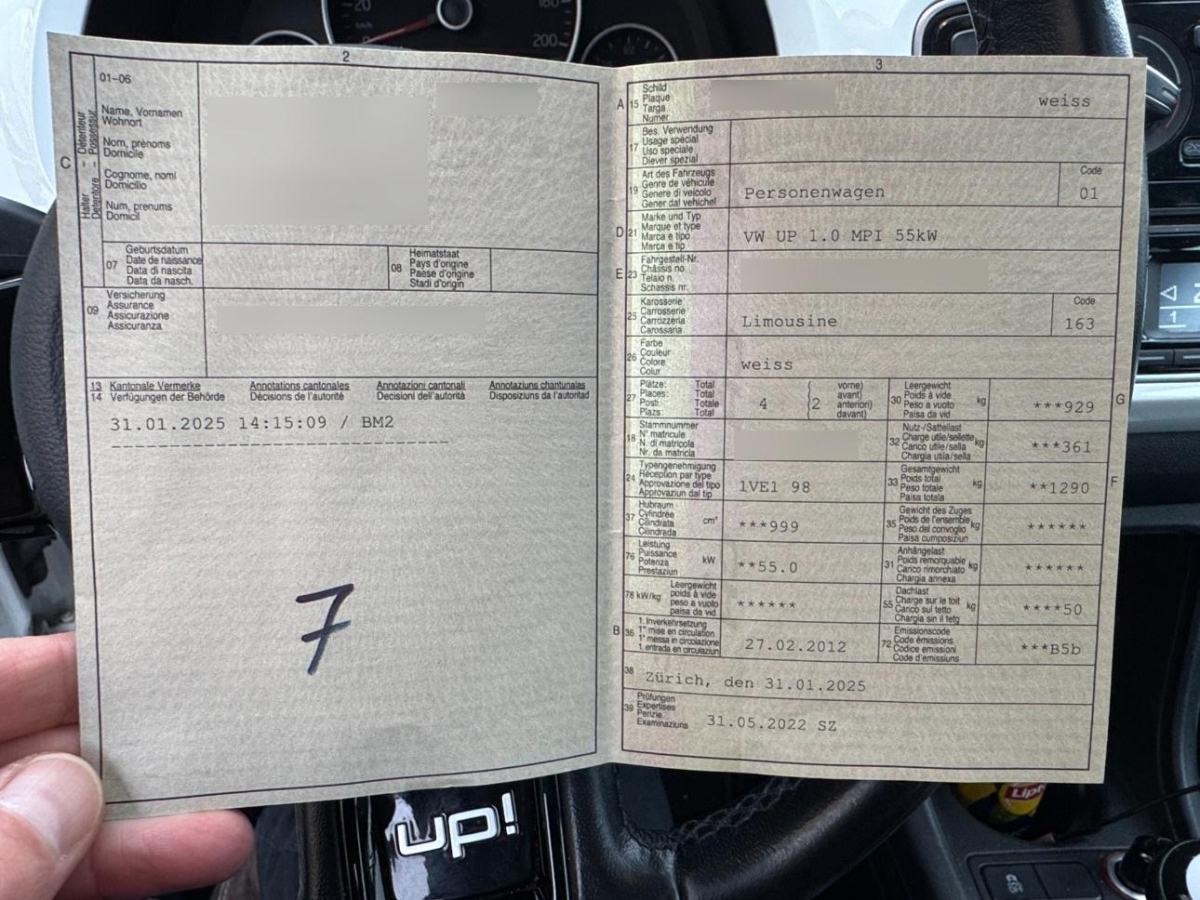 20
180
200
2
01-06
Halter - Detenteur
Detentore - Possessur
C
Name, Vornamen
Wohnort
Nom, prénoms
Domicile
Cognome, nomi
Domicilio
Num, prenums
Domicil
07
Geburtsdatum
Date de naissance
Data di nascita
Data da nasch.
08
Heimatstaat
Pays d'origine
Paese d'origine
Stadi d'origin
09
Versicherung
Assurance
Assicurazione
Assicuranza
13 Kantonale Vermerke Annotations cantonales Annotazioni cantonali Annotaziuns chantunalas
14 Verfügungen der Behörde Décisions de l'autorité Decisioni dell'autorità Disposiziuns da l'autoritad
31.01.2025 14:15:09 / BM2
7
3
A 15
Schild
Plaque
Targa
Numer
weiss
17
Bes. Verwendung
Usage spécial
Uso speciale
Diever spezial
19
Art des Fahrzeugs
Genre de véhicule
Genere di veicolo
Gener dal vehichel
Personenwagen
Code
01
D 21
Marke und Typ
Marque et type
Marca e tipo
Marca e tip
VW UP 1.0 MPI 55kW
E 23
Fahrgestell-Nr.
Châssis no
Telaio n.
Schassis nr.
25
Karosserie
Carrosserie
Carrozzeria
Carossaria
Limousine
Code
163
26
Farbe
Couleur
Colore
Colur
weiss
27
Plätze: Total
Places: Total
Posti: Totale
Plazs: Total
4
2
vorne)
avant)
anteriori)
davant)
30
Leergewicht
Poids à vide
Peso a vuoto
Paisa da vid
kg
***929
G
18
Stammnummer
N° matricule
N. di matricola
Nr. da matricla
32
Nutz-/Sattellast
Charge utile/sellette
Carico utile/sella
Chargia utila/sella
kg
***361
24
Typengenehmigung
Réception par type
Approvazione del tipo
Approvaziun dal tip
1VE1 98
33
Gesamtgewicht
Poids total
Peso totale
Paisa totala
kg
**1290
F
37
Hubraum
Cylindrée
Cilindrata
Cilindrada
cm³
***999
35
Gewicht des Zuges
Poids de l'ensemble
Peso del convoglio
Paisa cumposiziun
kg
******
76
Leistung
Puissance
Potenza
Prestaziun
kW
**55.0
31
Anhängelast
Poids remorquable
Carico rimorchiato
Chargia annexa
kg
******
78 kW/kg
Leergewicht
poids à vide
peso a vuoto
paisa da vid
******
55
Dachlast
Charge sur le toit
Carico sul tetto
Chargia sin il tetg
kg
****50
B 36
1. Inverkehrsetzung
1re mise en circulation
1a messa in circolazione
1. entrada en circulaziun
27.02.2012
72
Emissionscode
Code émissions
Codice emissioni
Code d'emissiuns
***B5b
38
Zürich, den 31.01.2025
39
Prüfungen
Expertises
Perizie
Examinaziuns
31.05.2022 SZ
up!